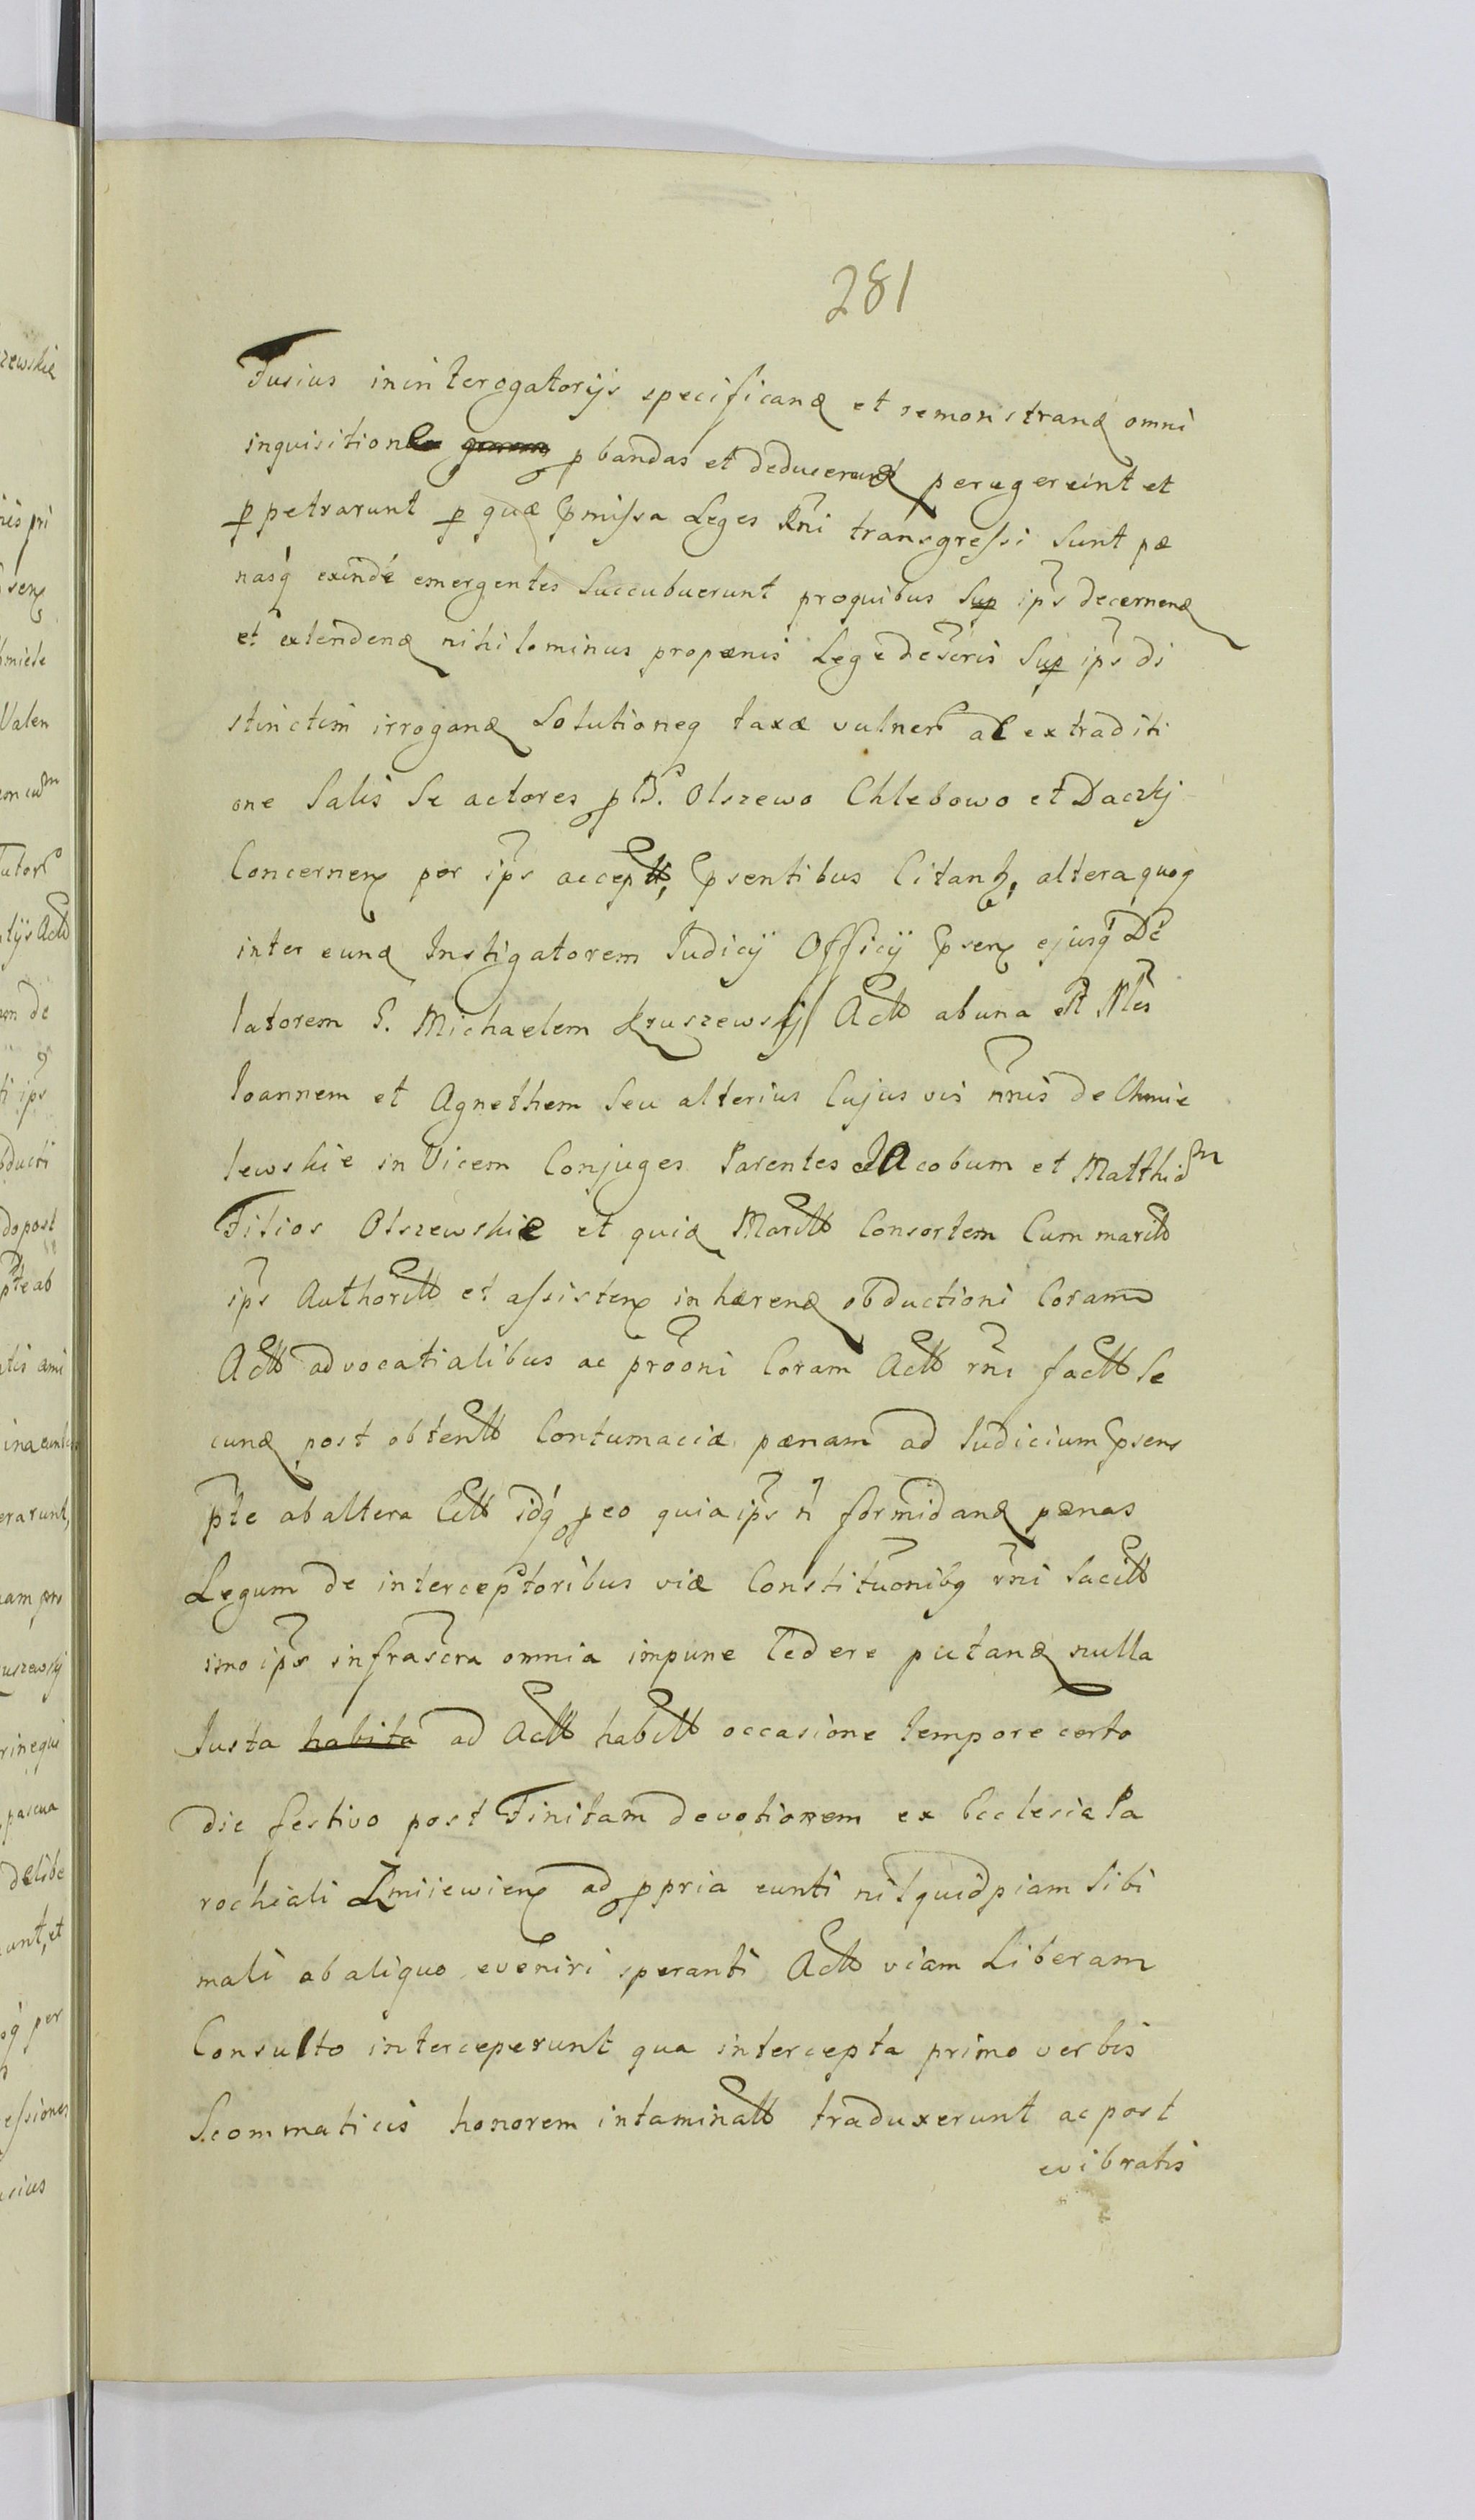 281
Fusius in interogatorijs specificand et remonstrand omni
inquisitione p bandas et deducend peregerunt et
p petrarunt p quæ pmissa Leges Rni transgressi sunt pæ
nasq exinde emergentes Succubuerunt proquibus Sup ips decernend
et extendend nihilominus propænis Lege descris Sup ips di
stinctim irrogand Solutioneq taxæ vulner ac extraditi
one Salis Se actores p B. Olszewo Chlebowo et Daczkj
Concernen per ips accept, psentibus Citanh, altera quoq
inter eund Instigatorem Iudicij Officij psen ejusq De
latorem G. Michaelem Kruszewskj Act ab una et Nles
Ioannem et Agnethem Seu alterius Cujus vis nnis de Chmie
lewskie in Vicem Conjuges Parentes Iacobum et Matthiam
Filios Olszewskie et quid Marit Consortem Cum marit
ips Authorit et assisten inhærend obductioni Coram
Act advocatialibus ac prooni Coram Act rni fact Se
cund post obtent Contumaciæ pænam ad Iudicium psens
pte ab altera Cit idq peo quia ips n formidand pænas
Legum de interceptoribus viæ Constituonibq rni Sacit
imo ips infrascra omnia impune Cedere putand nulla
Iusta habita ad Act habit occasione tempore certo
die festivo post Finitam devotionem ex Ecclesia Pa
rochiali Zmiiewien ad ppria eunti nil quidpiam Sibi
mali ab aliquo eveniri speranti Act viam Liberam
Consulto interceperunt qua intercepta primo verbis
Scommaticis honorem intaminatt traduxerunt ac post
evibratis